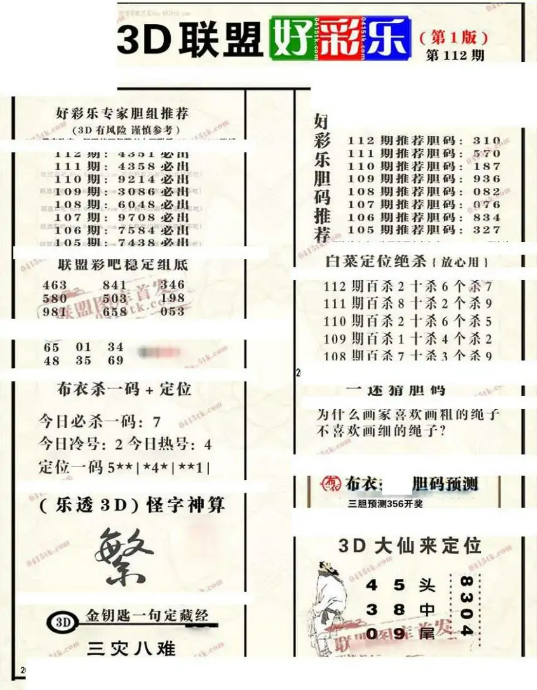 3D联盟好彩乐
(第1版)
第112期
好彩乐专家胆组推荐
(3D有风险 谨慎参考)
112期:4351必出
111期:4358必出
110期:9214必出
109期:3086必出
108期:6048必出
107期:9708必出
106期:7584必出
105期:7438必出
联盟彩吧稳定组底
463 841 346
580 503 198
981 658 053
65 01 34
48 35 69
布衣杀一码+定位
今日必杀一码:7
今日冷号:2今日热号:4
定位一码5**|*4*|**1|
(乐透3D)怪字神算
繁
3D 金钥匙一句定藏经
三灾八难
好彩乐胆码推荐
112期推荐胆码:310
111期推荐胆码:570
110期推荐胆码:187
109期推荐胆码:936
108期推荐胆码:082
107期推荐胆码:076
106期推荐胆码:834
105期推荐胆码:327
白菜定位绝杀{放心用}
112期百杀2十杀6个杀7
111期百杀8十杀2个杀9
110期百杀2十杀6个杀5
109期百杀1十杀4个杀2
108期百杀7十杀3个杀9
2
一迷猜胆码
为什么画家喜欢画粗的绳子
不喜欢画细的绳子?
布衣: 胆码预测
三胆预测356开奖
3D大仙来定位
4 5 头
3 8 中
0 9 尾
8304
联盟图库首发
0415tk.com